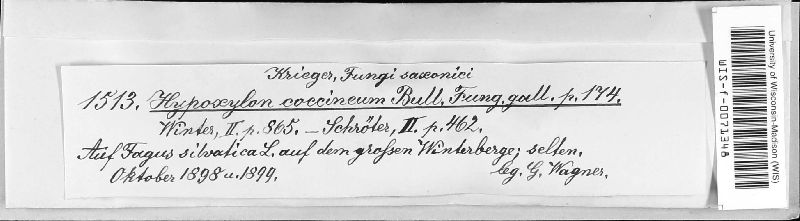 Krieger, Fungi saxonici
1513. Hypoxylon coccineum Bull. Fung. gall. p. 174.
Winter, II. p. 865. — Schröter, II. p. 462.
Auf Fagus silvatica L. auf dem großen Winterberge; selten.
Oktober 1898 u. 1899. leg. G. Wagner.
University of Wisconsin-Madison (WIS)
WIS-f-0071348